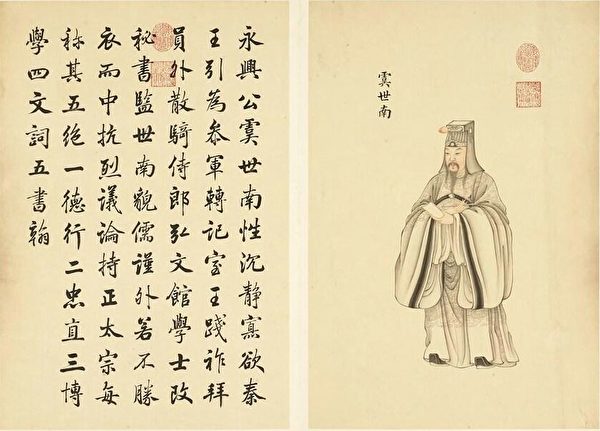 虞世南
永興公虞世南性沉静寡欲秦
王引為叅軍轉記室王踐祚拜
員外散騎侍郎弘文館學士改
秘書監世南貌儒謹外若不勝
衣而中抗烈議論持正太宗每
称其五絶一德行二忠直三博
學四文詞五書翰